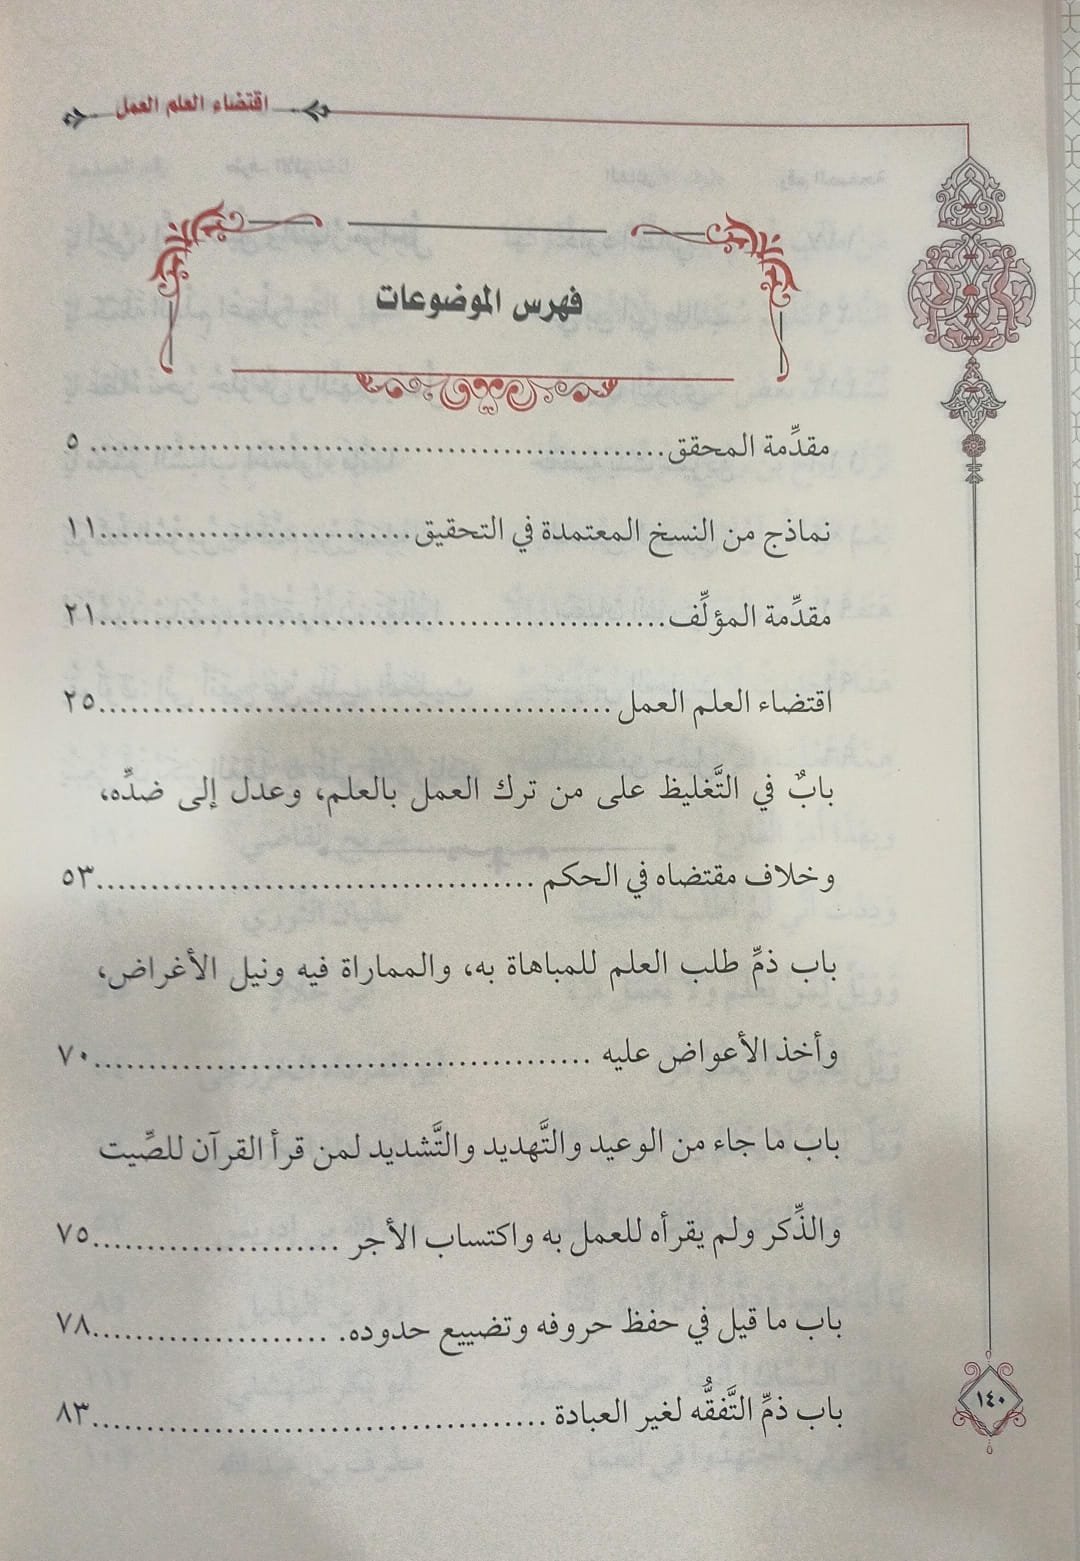 اقتضاء العلم العمل
فهرس الموضوعات
مقدِّمة المحقق ........ ٥
نماذج من النسخ المعتمدة في التحقيق ........ ١١
مقدِّمة المؤلِّف ........ ٢١
اقتضاء العلم العمل ........ ٢٥
بابٌ في التَّغليظ على من ترك العمل بالعلم، وعدل إلى ضدِّه،
وخلاف مقتضاه في الحكم ........ ٥٣
باب ذمِّ طلب العلم للمباهاة به، والمماراة فيه ونيل الأغراض،
وأخذ الأعواض عليه ........ ٧٠
باب ما جاء من الوعيد والتَّهديد والتَّشديد لمن قرأ القرآن للصِّيت
والذِّكر ولم يقرأه للعمل به واكتساب الأجر ........ ٧٥
باب ما قيل في حفظ حروفه وتضييع حدوده. ........ ٧٨
باب ذمِّ التَّفقُّه لغير العبادة ........ ٨٣
١٤٠